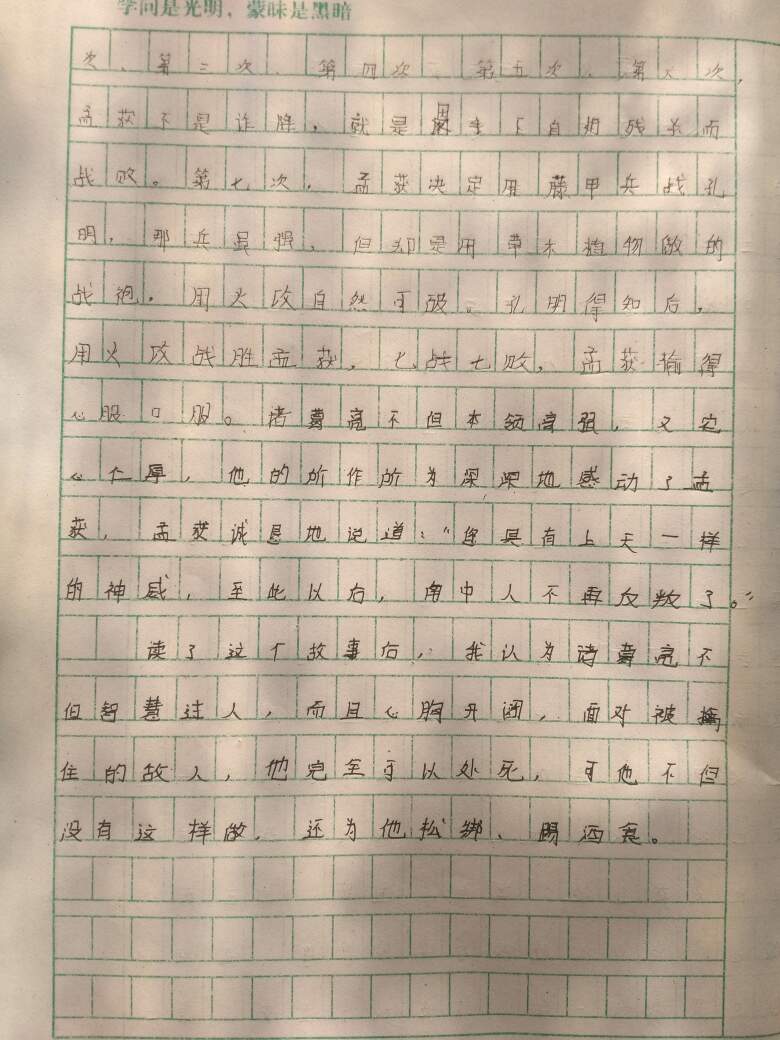 学问是光明，蒙昧是黑暗
次、第三次、第四次、第五次、第六次，
孟获不是诈降，就是因手下自相残杀而
战败。第七次，孟获决定用藤甲兵战孔
明，那兵虽强，但却是用草木植物做的
战袍，用火攻自然可破。孔明得知后，
用火攻战胜孟获，七战七败，孟获输得
心服口服。诸葛亮不但本领高强，又宅
心仁厚，他的所作所为深深地感动了孟
获，孟获诚恳地说道：“您具有上天一样
的神威，至此以后，南中人不再反叛了。”
读了这个故事后，我认为诸葛亮不
但智慧过人，而且心胸开阔，面对被擒
住的敌人，他完全可以处死，可他不但
没有这样做，还为他松绑、赐酒食。